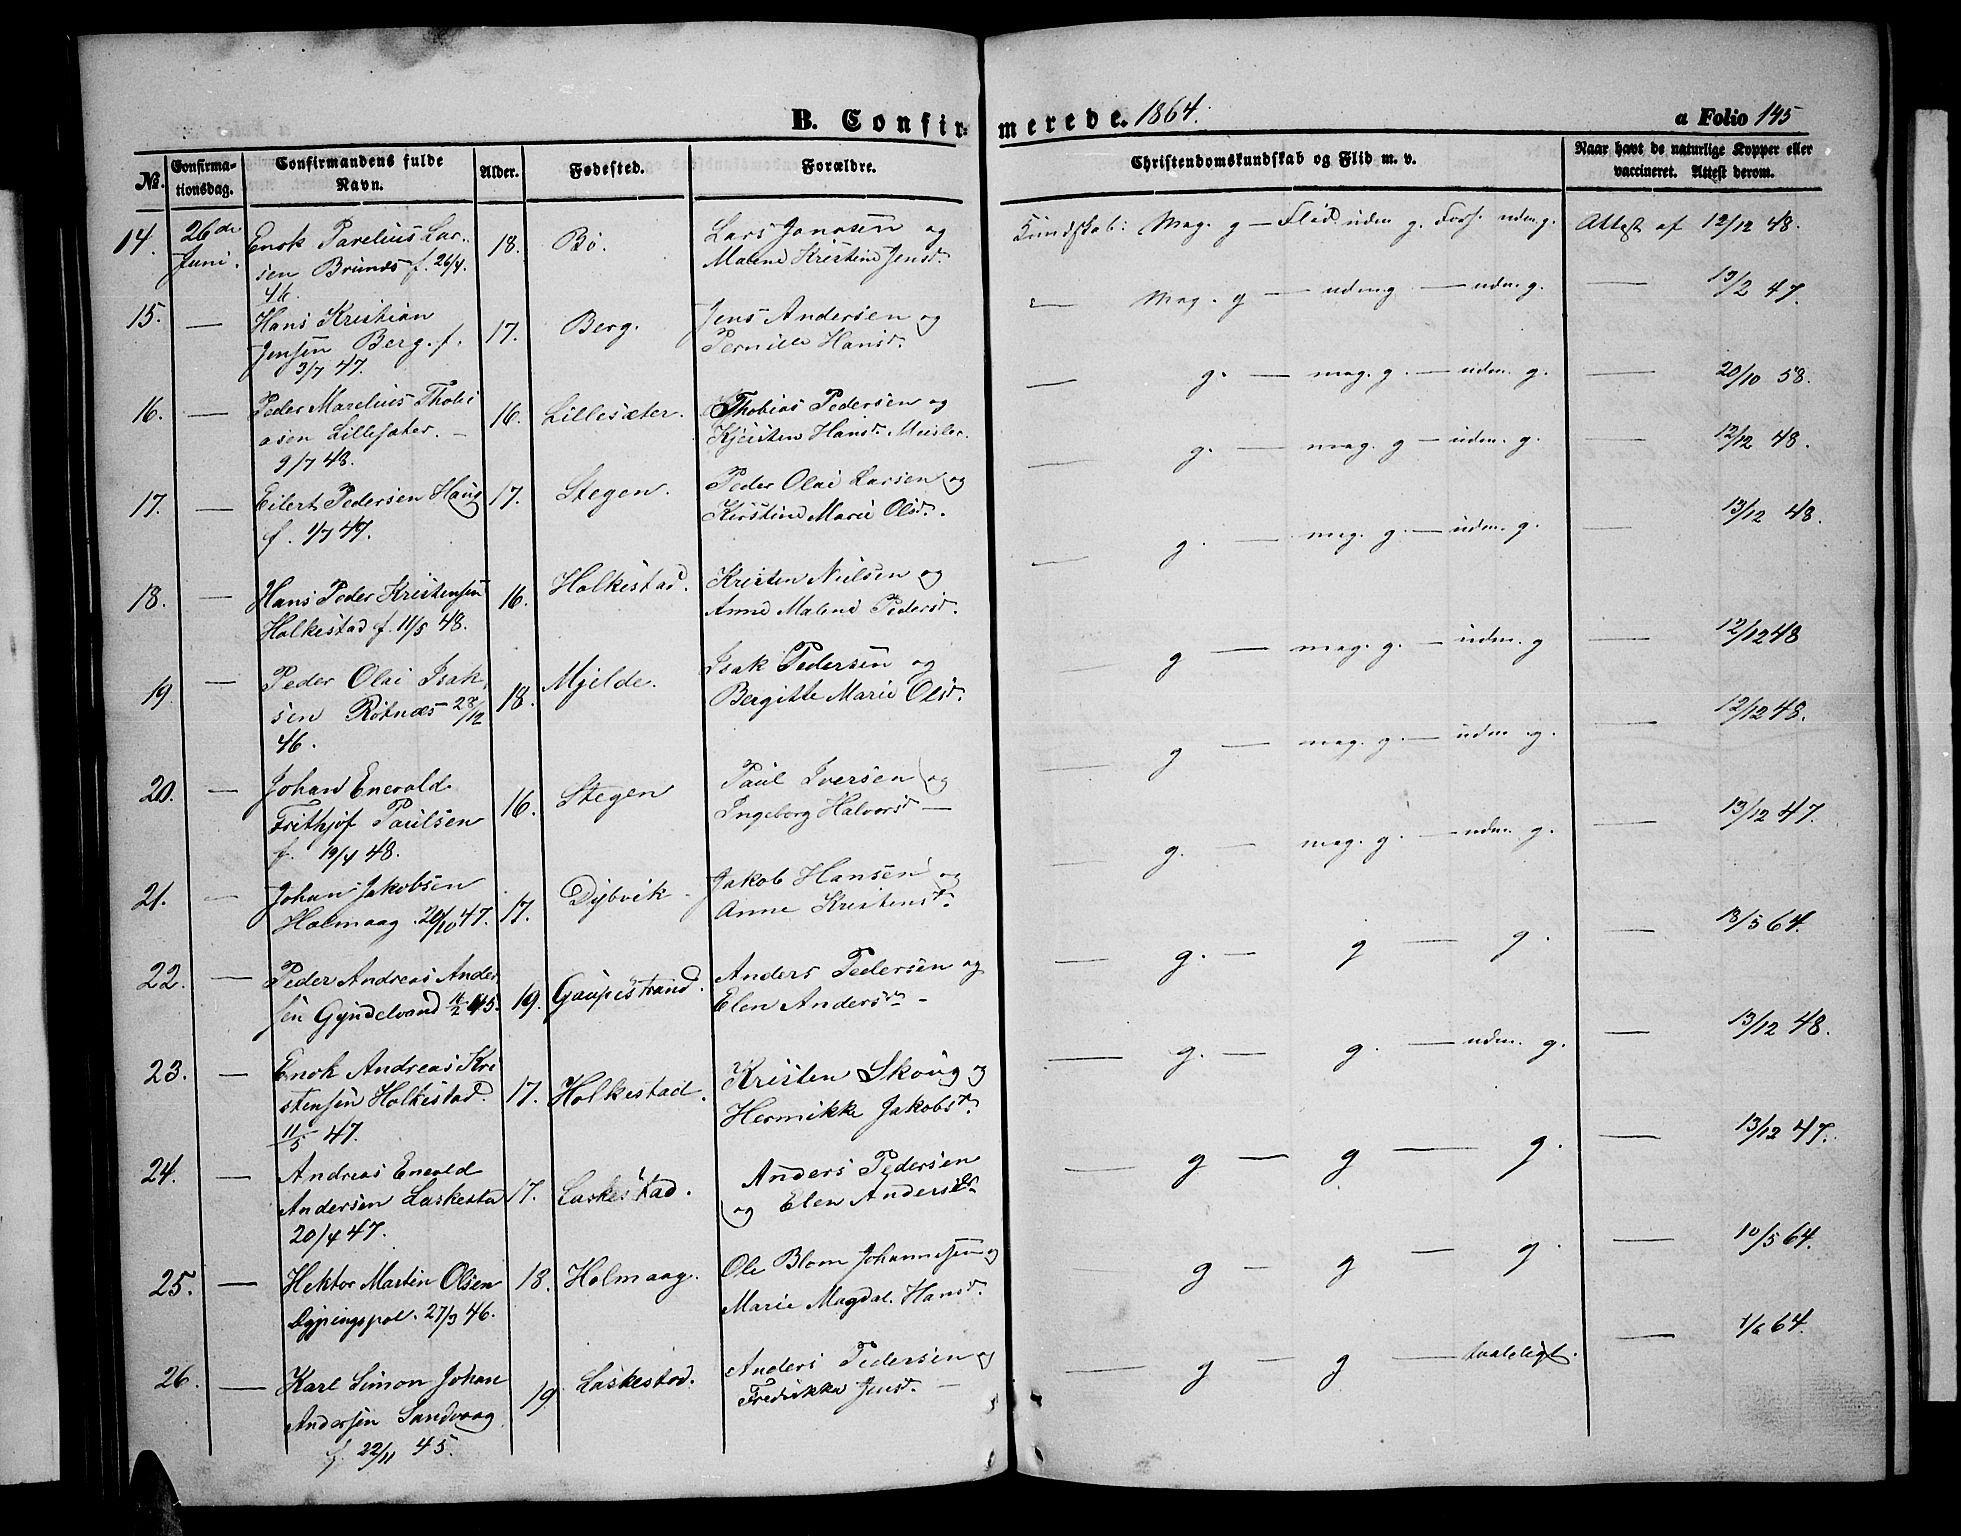 B. Confirmerede. 1864.
a Folio 145
No.
Confirmationsdag.
Confirmandens fulde Navn.
Alder.
Fødested.
Forældre.
Christendomskundskab og Flid m. v.
Naar havt de naturlige Kopper eller vaccineret. Attest derom.
14. 26de Juni. Enok Parelius Lar- 18. Bø. Lars Jonasen og Kundskab: Mag. g — Flid uden g. Forh. udm. g. Attest af 12/12 48.
sen Brunes f. 26/4 Malene Kristine Jensd.
46.
15. — Hans Kristian 17. Berg. Jens Andersen og — Mag. g — udm. g — udm. g. — 13/2 47.
Jensen Berg. f. Pernille Hansd.
3/7 47.
16. — Peder Marelius Thobi 16. Lillesæter. Thobias Pedersen og — g. — mag. g. — udm. g. — 20/10 58.
asen Lillesæter. — Kjersten Hansd. Meisler.
9/7 48.
17. — Eilert Pedersen Haug 17. Stegen. Peder Olai Larsen og — g. — mag. g — udm. g. — 12/12 48.
f. 1/7 47. Kirstine Marie Olsd.
18. — Hans Peder Kristensen 16. Holkestad. Kristen Nielsen og — g. — mag. g. — udm. g. — 13/12 48.
Holkestad f. 11/5 48. Anne Malene Pedersd.
19. — Peder Olai Isak 18. Mjelde. Isak Pedersen og — g — mag. g. — udm. g — 12/12 48
sen Røtnæs 28/12 Bergitte Marie Olsd.
46.
20. — Johan Enevold 16. Stegen Paul Iversen og — g — mag. g. — udm. g. — 12/12 48.
Frithjof Paulsen Ingeborg Halvorsd. —
f. 19/4 48.
21. — Johan Jakobsen 17. Dybvik — Jakob Hansen og — g. — mag. g. — udm. g. — 13/12 47.
Holmaag. 20/10 47. Anne Kristensd.
22. — Peder Andreas Ander 19. Gaupestrand. Anders Pedersen og — g. — g — g. — 18/5 64.
sen Gyndelvand 11/2 45. Elen Andersd. —
23. — Enok Andreas Kri 17. Holkestad. Kristen Skoug og — g. — g. — udm. g. — 13/12 48.
stensen Holkestad. Hermikke Jakobsd.
11/5 47.
24. — Andreas Enevold 17. Laskestad. Anders Pedersen — g — g — g. — 13/12 47.
Andersen Laskesta og Elen Andersd.
20/4 47.
25. — Hektor Martin Olsen 18. Holmaag. Ole Blom Johannesen og — g — g — g. — 10/5 64.
27/3 46. Marie Magdal. Hansd.
26. — Karl Simon Johan 19 Laskestad. Anders Pedersen og — g — g — taaleligt. — 1/6 64.
Andersen Sandvaag Fredrikke Jensd. —
f. 22/11 45.